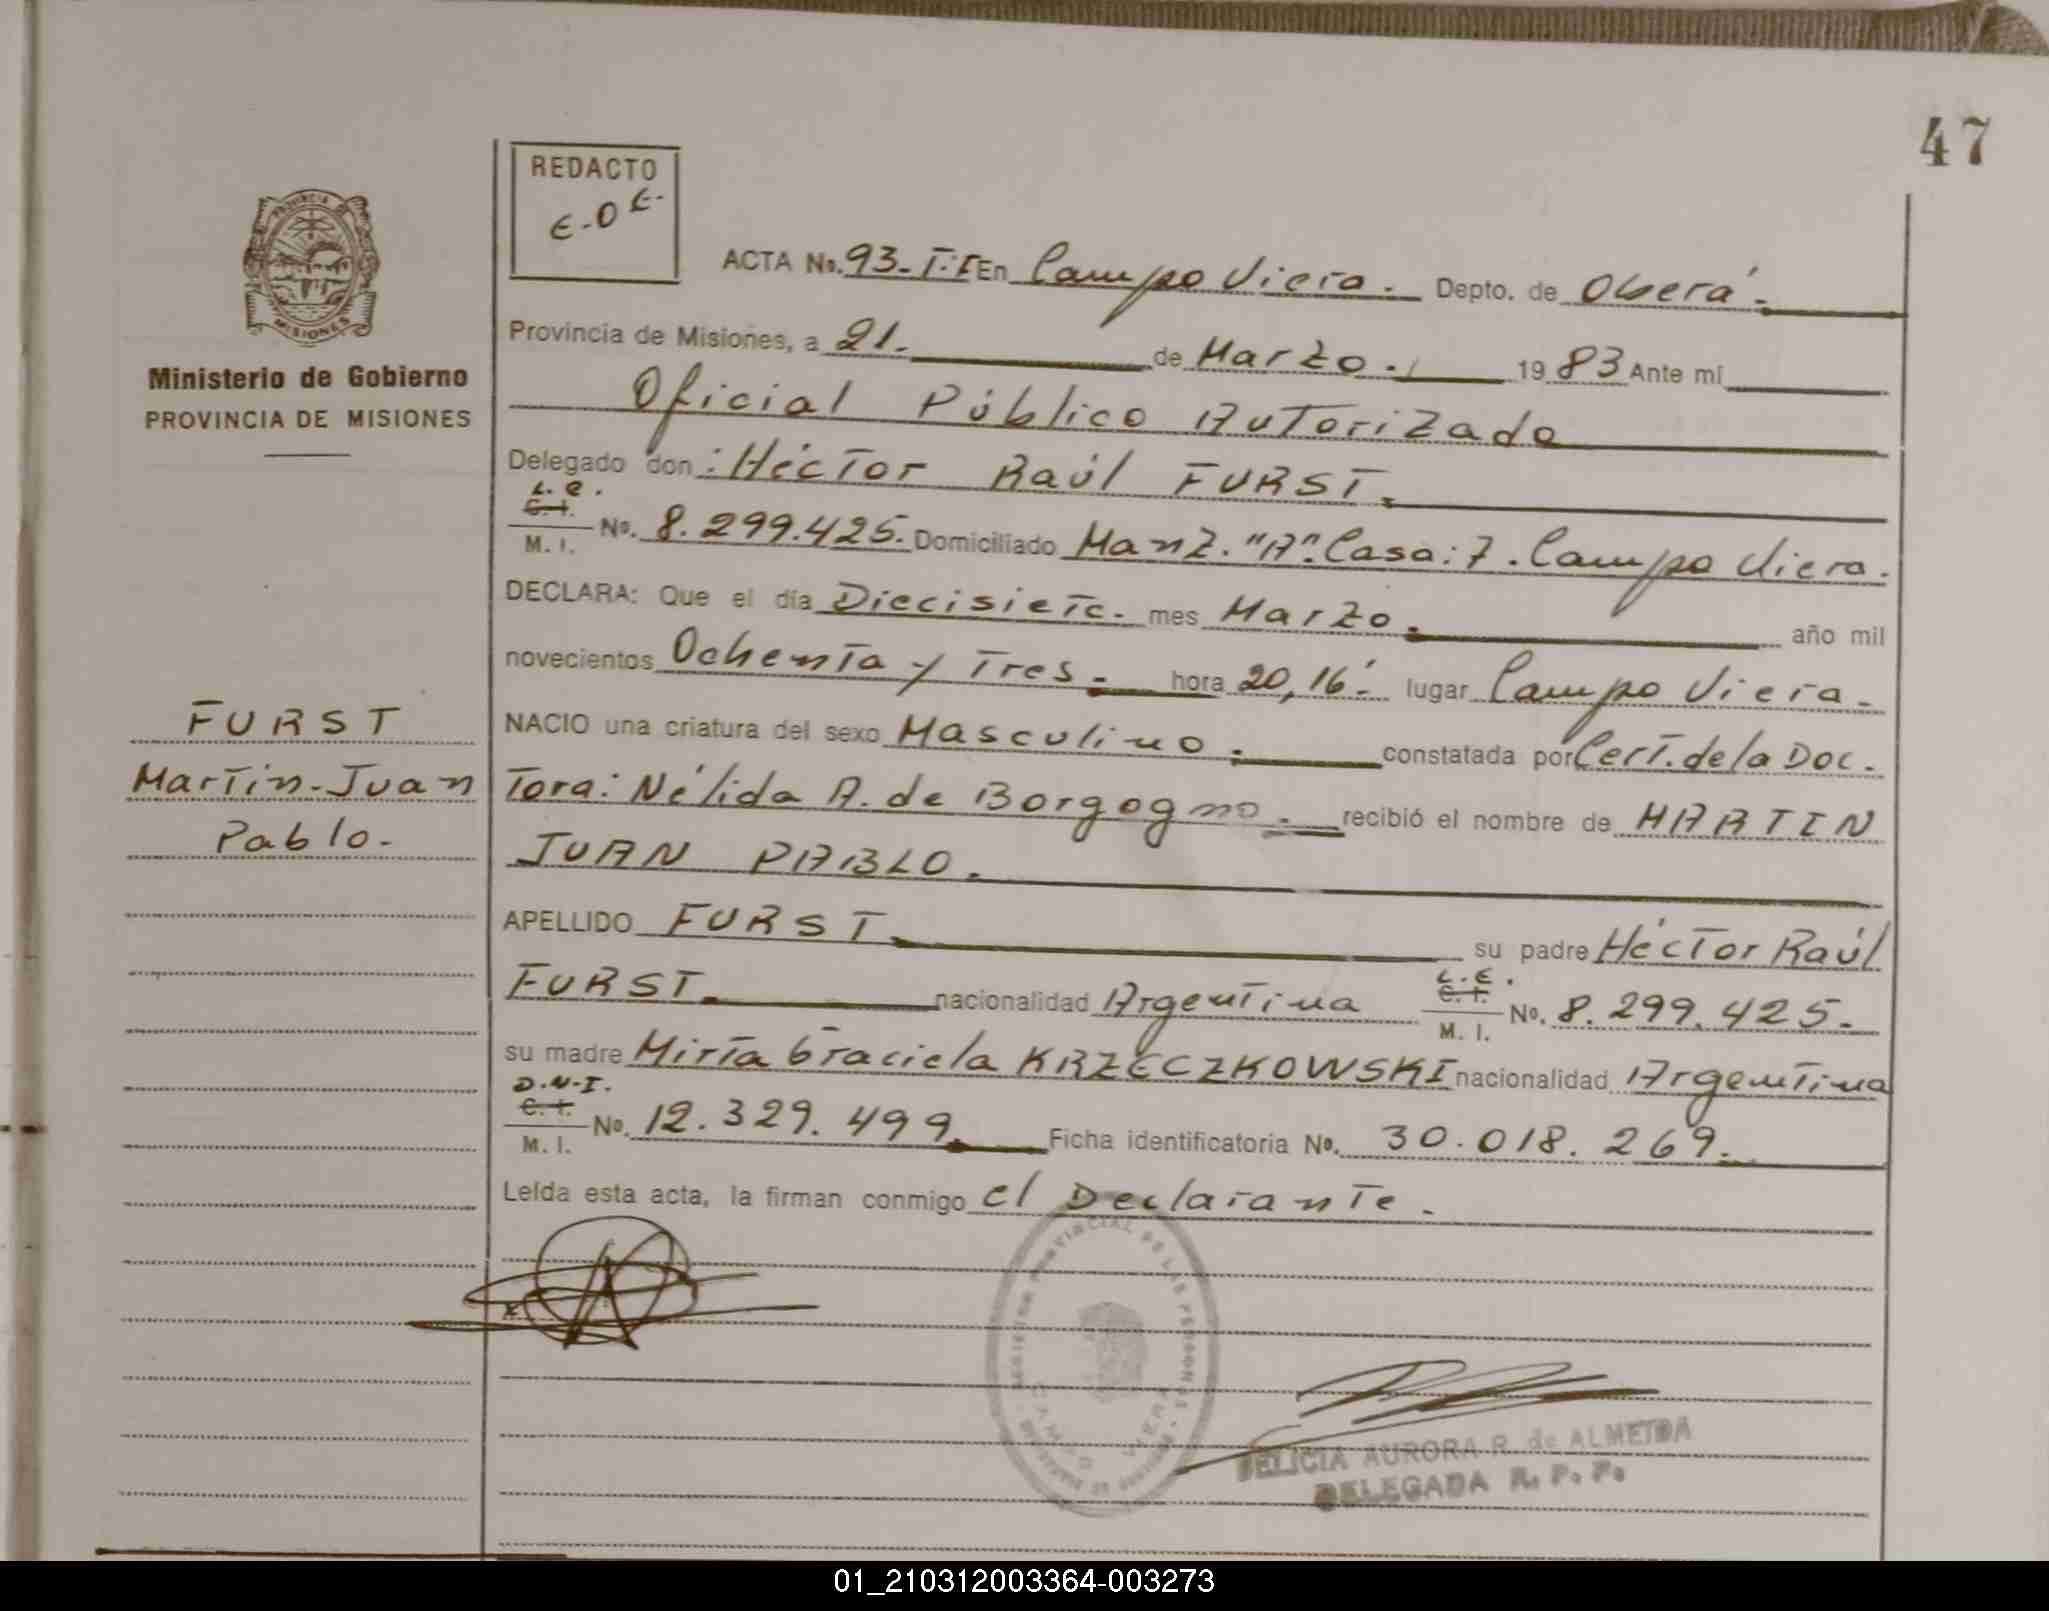 47
REDACTO
E-O E-
PROVINCIA DE
MISIONES
Ministerio de Gobierno
PROVINCIA DE MISIONES
ACTA No. 93-T:I En Campo Viera. Depto. de Oberá.
Provincia de Misiones, a 21. de Marzo. 1983 Ante mí
Oficial Público Autorizado
Delegado don: Héctor Raúl FURST.
L.E.
C.I.
M. I. No. 8.299.425. Domiciliado Manz. "A". Casa: 7. Campo Viera.
DECLARA: Que el día Diecisiete. mes Marzo. año mil
novecientos Ochenta y Tres. hora 20,16'. lugar Campo Viera.
FURST
Martin-Juan
Pablo.
NACIO una criatura del sexo Masculino. constatada por Cert. de la Doc.
Tora: Nélida A. de Borgogno. recibió el nombre de MARTIN
JUAN PABLO.
APELLIDO FURST. su padre Héctor Raúl
L.E.
C.I.
FURST. nacionalidad Argentina M. I. No. 8.299.425.
su madre Miría Graciela KRZECZKOWSKI nacionalidad Argentina
D.N.I.
C.I.
M. I. No. 12.329.499. Ficha identificatoria No. 30.018.269.
Leída esta acta, la firman conmigo el Declarante.
PROVINCIAL DE LAS PERSONAS
CAMPO VIERA
FELICIA AURORA R. de ALMEIDA
DELEGADA R. P. P.
01_210312003364-003273